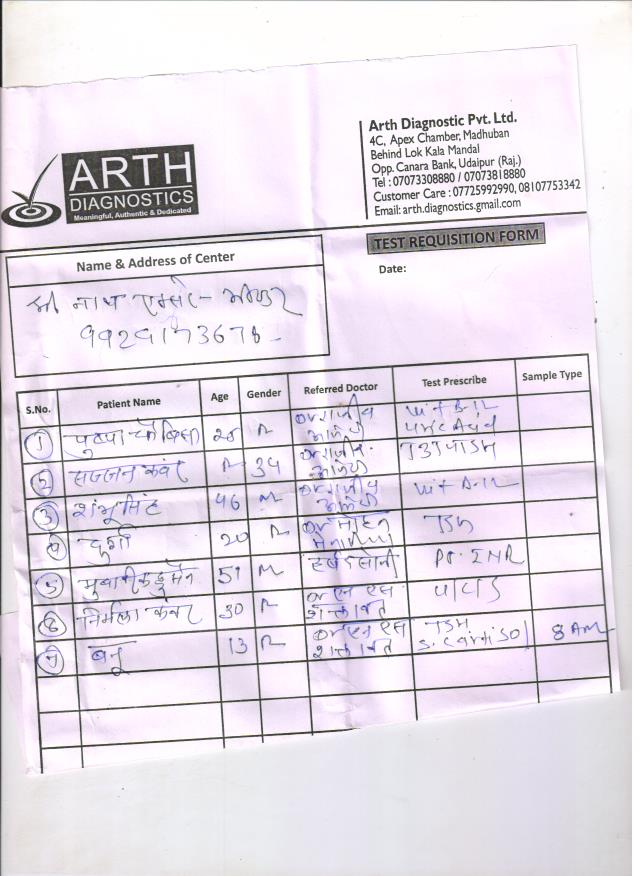 ARTH
DIAGNOSTICS
Meaningful, Authentic & Dedicated
Arth Diagnostic Pvt. Ltd.
4C, Apex Chamber, Madhuban
Behind Lok Kala Mandal
Opp. Canara Bank, Udaipur (Raj.)
Tel : 07073308880 / 07073818880
Customer Care : 07725992990, 08107753342
Email: arth.diagnostics.gmail.com
TEST REQUISITION FORM
Name & Address of Center
Date:
श्री नाथ
S.No. Patient Name Age Gender Referred Doctor Test Prescribe Sample Type
1 पुष्पा 28 F Vit B-12
2 सज्जन कंवर F 34 T3T4TSH
3 शंभू सिंह 46 M Vit B-12
4 20 F Dr मोहन TSH
5 हुसैन 51 M सोनी PT INR
6 निर्मला कंवर 30 F Dr एन एस शक्तावत
7 बनू 13 F Dr एन एस शक्तावत TSH S. Cortisol 8 AM